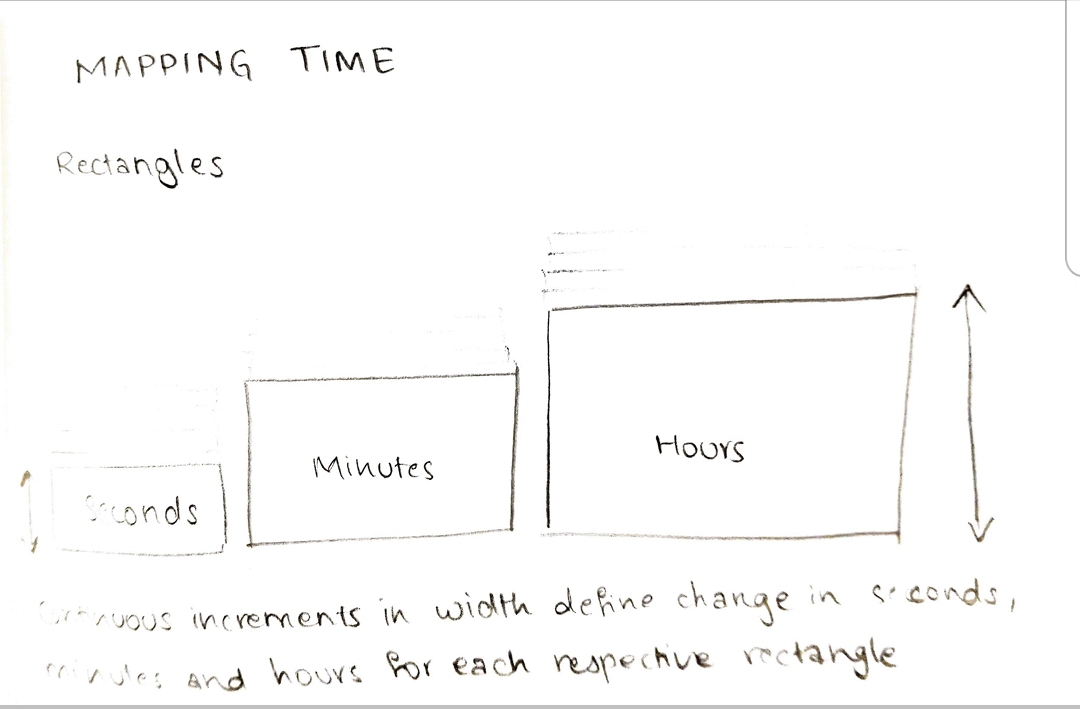 MAPPING TIME
Rectangles
Hours
Minutes
Seconds
Continuous increments in width define change in seconds,
minutes and hours for each respective rectangle